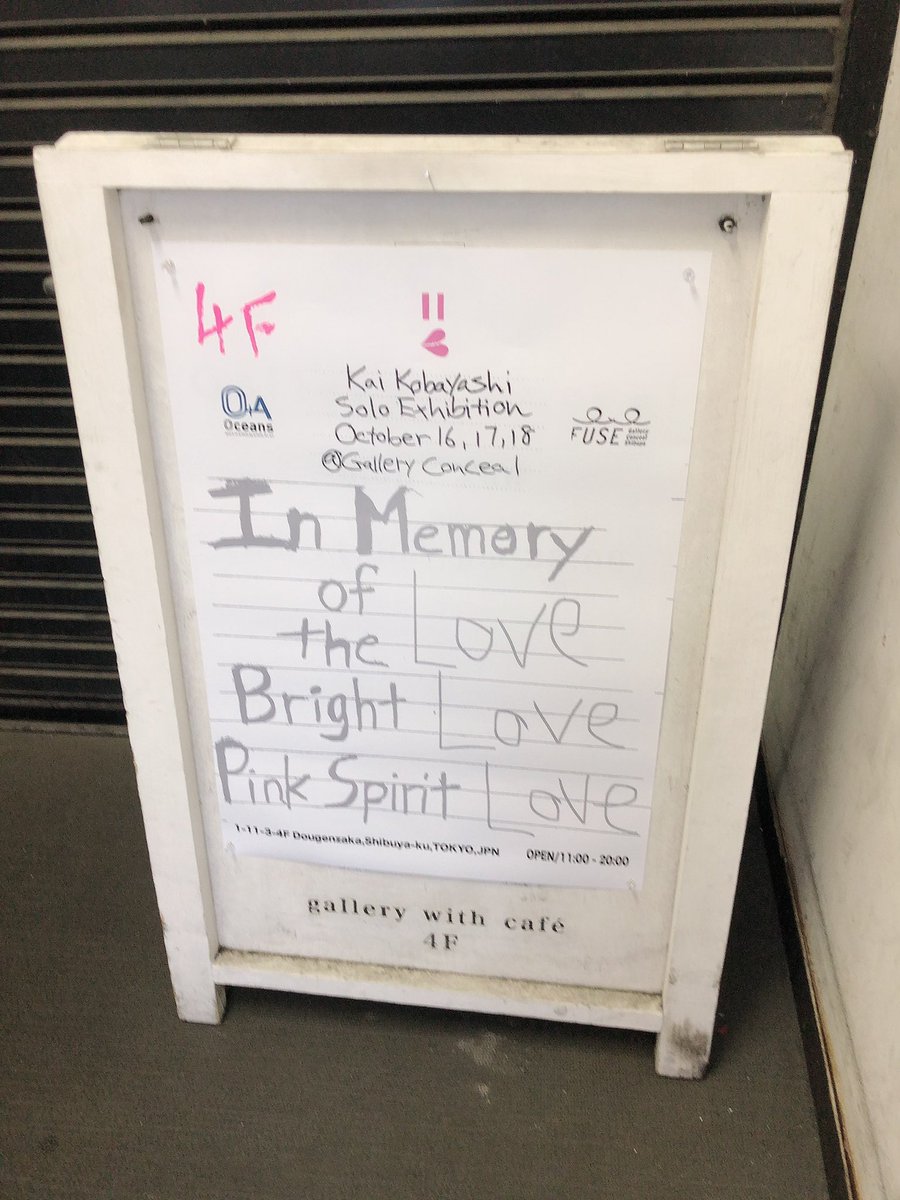 4F
Kai Kobayashi
Solo Exhibition
October 16, 17, 18
@Gallery Conceal
Oceans
FUSE
In Memory
of
the Love
Bright Love
Pink Spirit Love
1-11-3-4F Dougensaka,Shibuya-ku,TOKYO,JPN OPEN/11:00 - 20:00
gallery with café
4F